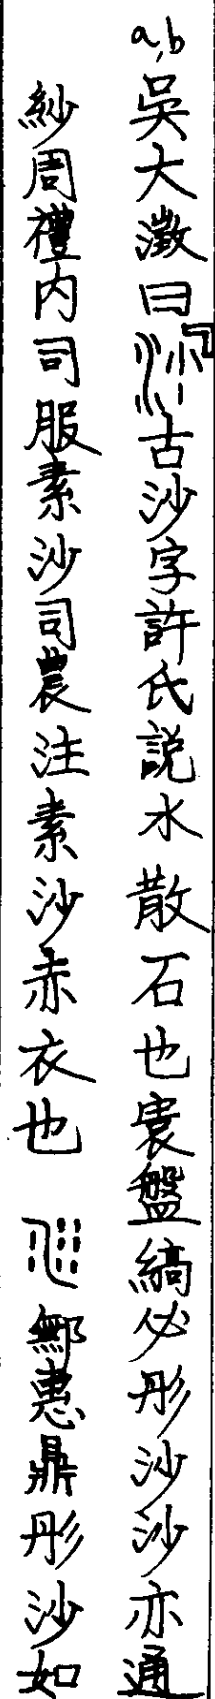 a,b
吳大澂曰古沙字許氏說水散石也寰盤縞必彤沙沙亦通
紗周禮內司服素沙司農注素沙赤衣也 鄦惠鼎彤沙如